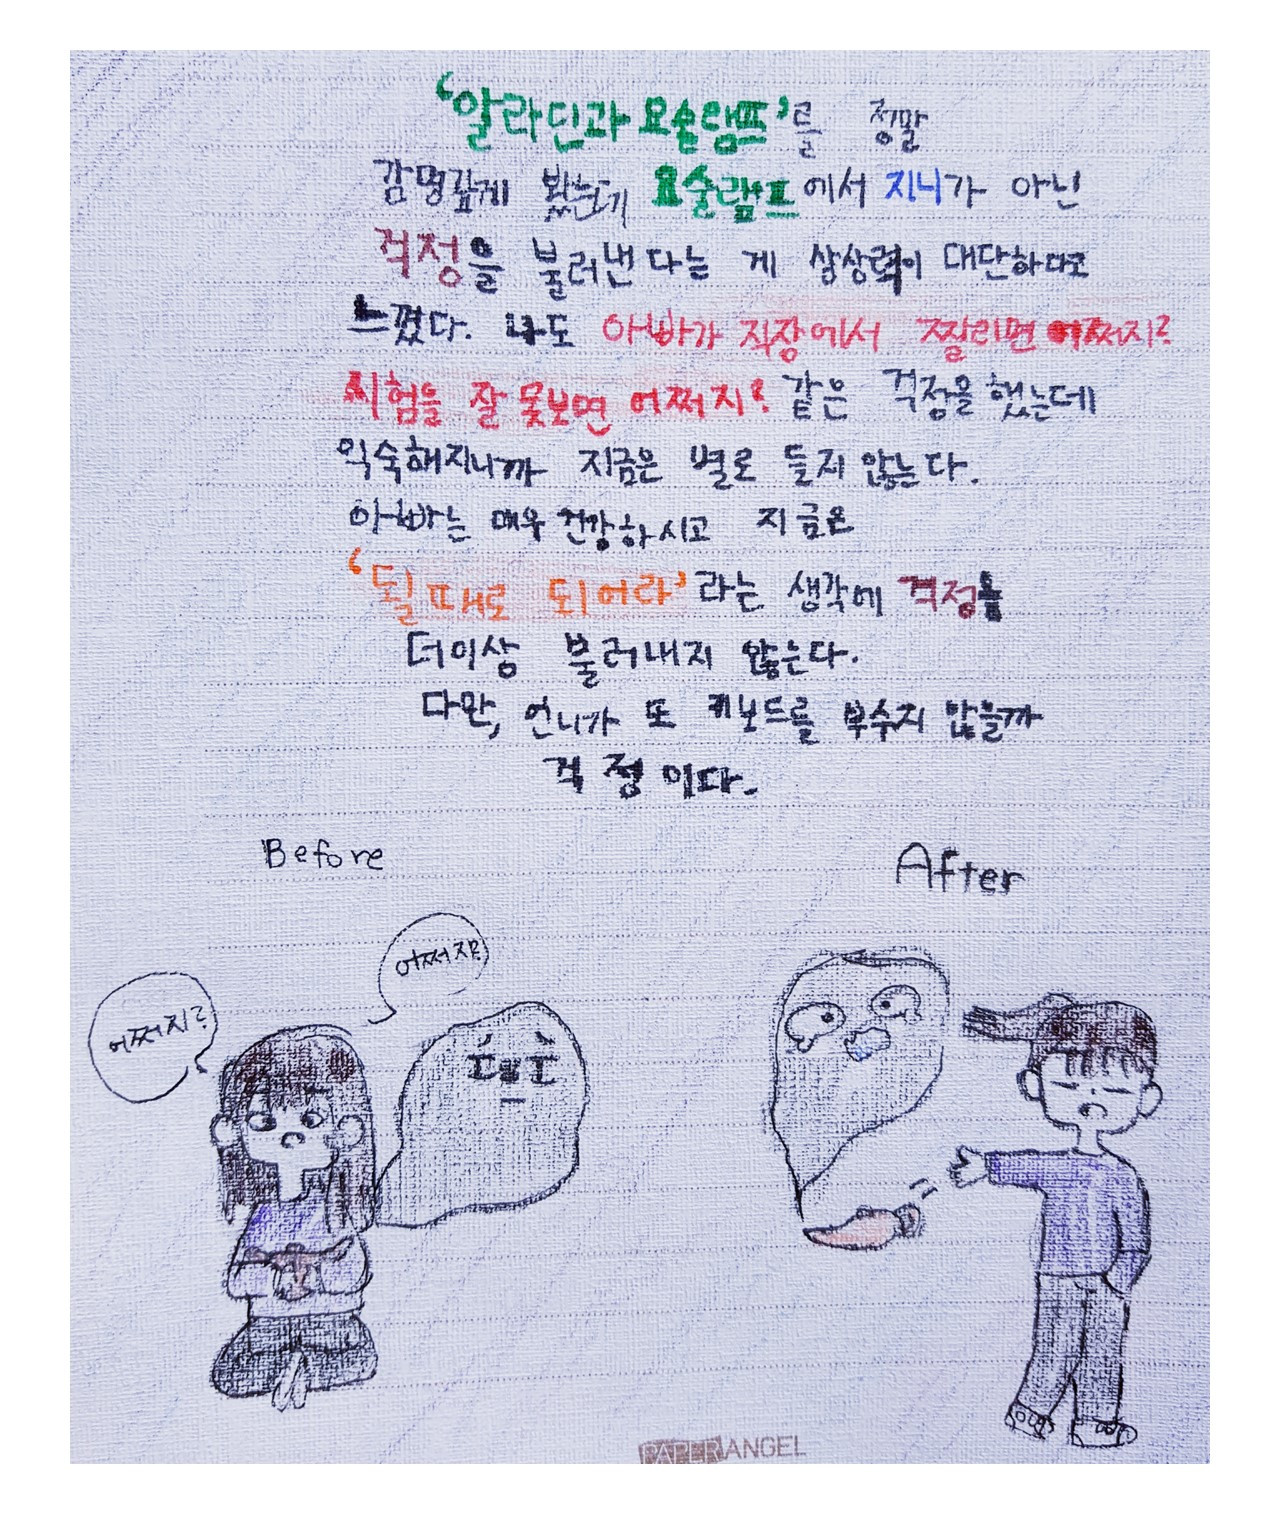 '알라딘과 요술램프'를 정말
감명깊게 봤는데 요술램프에서 지니가 아닌
걱정을 불러낸다는 게 상상력이 대단하다고
느꼈다. 나도 아빠가 직장에서 짤리면 어쩌지?
시험을 잘 못보면 어쩌지? 같은 걱정을 했는데
익숙해지니까 지금은 별로 들지 않는다.
아빠는 매우 건강하시고 지금은
'될 때로 되어라'라는 생각에 걱정을
더이상 불러내지 않는다.
다만, 언니가 또 키보드를 부수지 않을까
걱정이다.
Before
After
어쩌지?
어쩌지?
PAPER ANGEL